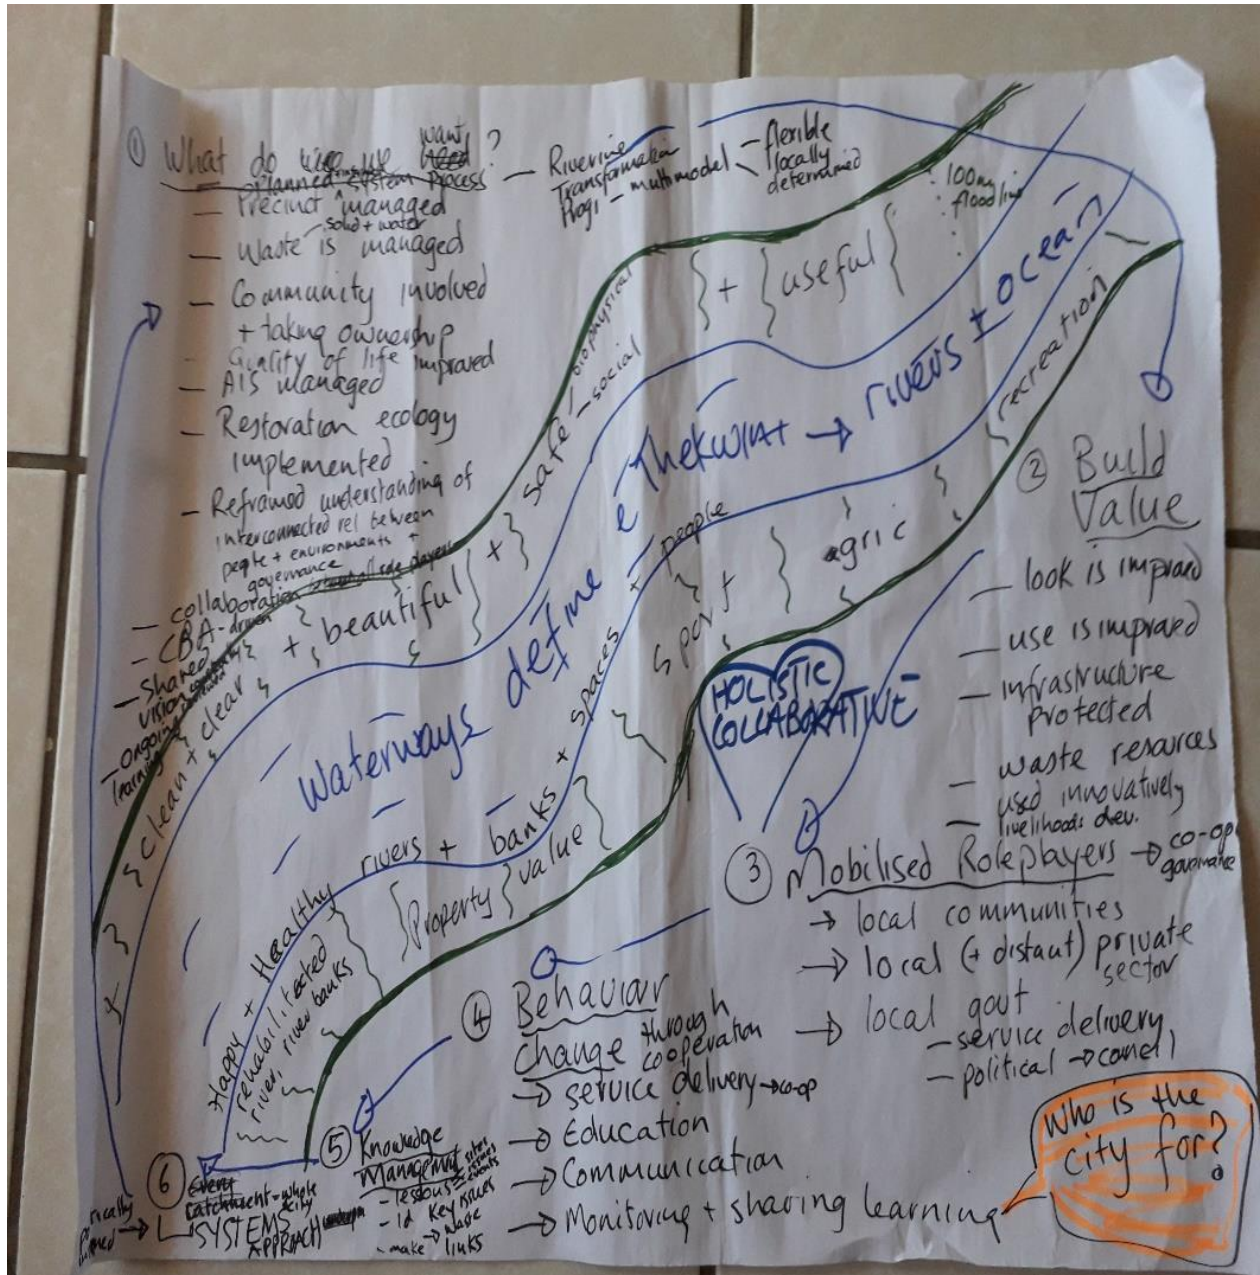 ① What do we want ?
Planned system process
— Riverine
Transformation
Progr — multimodel — flexible
locally
determined
— Precinct managed
solid + water
— Waste is managed
— Community involved
+ taking ownership
Quality of life improved
— AIS managed
— Restoration ecology
implemented
— Reframed understanding of
interconnected rel between
people + environments +
governance
— collaboration
— CBA-driven
— Shared
vision
— Ongoing
learning
100yr
floodline
clean + clear + beautiful + safe
biophysical
— social
+ useful
Waterways define eThekwini → rivers + ocean
Happy + Healthy rivers + banks + spaces + people
rehabilitated
river, river banks
Property value
sport + agric
recreation
HOLISTIC
COLLABORATIVE
② Build
Value
— look is improved
— use is improved
— infrastructure
protected
— waste resources
used innovatively
— livelihoods dev.
③ Mobilised Roleplayers → co-op
governance
→ local communities
→ local (+ distant) private
sector
→ local govt
— service delivery
— political → council
④ Behaviour
Change through
cooperation
→ service delivery → co-op
→ Education
→ Communication
→ Monitoring + sharing learning
Who is the
city for?
⑤ Knowledge
Management
sites
issues
events
- lessons
- id key issues
→ waste
- make links
⑥ Event
Catchment = whole
city
SYSTEMS
APPROACH